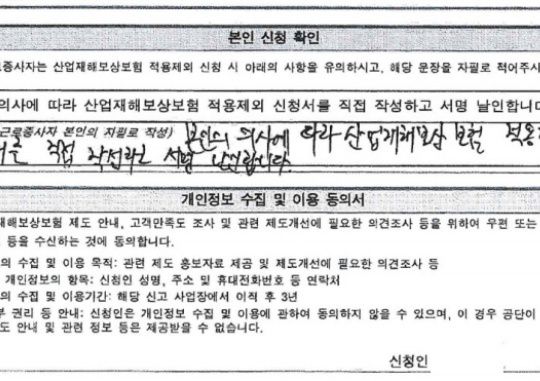 본인 신청 확인
로종사자는 산업재해보상보험 적용제외 신청 시 아래의 사항을 유의하시고, 해당 문장을 자필로 적어주시
의사에 따라 산업재해보상보험 적용제외 신청서를 직접 작성하고 서명 날인합니다
근로종사자 본인의 자필로 작성) 본인의 의사에 따라 산업재해보상 보험 적용
서를 직접 작성하고 서명 날인합니다.
개인정보 수집 및 이용 동의서
재해보상보험 제도 안내, 고객만족도 조사 및 관련 제도개선에 필요한 의견조사 등을 위하여 우편 또는
등을 수신하는 것에 동의합니다.
의 수집 및 이용 목적: 관련 제도 홍보자료 제공 및 제도개선에 필요한 의견조사 등
개인정보의 항목: 신청인 성명, 주소 및 휴대전화번호 등 연락처
의 수집 및 이용기간: 해당 신고 사업장에서 이직 후 3년
부 권리 등 안내: 신청인은 개인정보 수집 및 이용에 관하여 동의하지 않을 수 있으며, 이 경우 공단이
도 안내 및 관련 정보 등은 제공받을 수 없습니다.
신청인